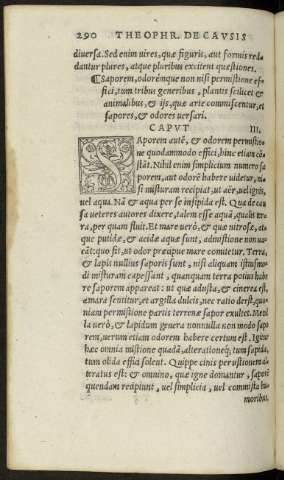 290 THEOPHR. DE CAVSIS
diuersa. Sed enim uires, quæ figuris, aut formis red
dantur plures, atque pluribus excitent quæstiones.
¶Saporem, odorémque non nisi permistione ef-
fici, tum tribus generibus, plantis scilicet &
animalibus, & ijs, quæ arte commiscentur, et
sapores, & odores uersari.
CAPVT III.
Saporem autē, & odorem permistio
ne quodammodo effici, hinc etiam cō
stāt. Nihil enim simplicium numero sa
porem, aut odorē habere uidetur, ni-
si misturam recipiat, ut aër, uel ignis,
uel aqua. Nā & aqua per se insipida est. Qua de cau
sa ueteres autores dixere, talem esse aquā, qualis ter
ra, per quam fluit. Et mare uerò, & quæ nitrosæ, at-
que putidæ, & acidæ aquæ sunt, admistione non ua-
cāt: quo fit, ut odor præcipue mare comitetur. Terra,
& lapis nullius saporis sunt, nisi aliquam istiusmo
di misturam capessant, quanquam terra potius habe
re saporem appareat: ut quæ adusta, & cinerea est,
amara sentitur, et argilla dulcis, nec ratio deest, quo
niam permistione partis terrenæ sapor exultet. Metal
la uerò, & lapidum genera nonnulla non modo sapo
rem, uerum etiam odorem habere certum est. Igitur
hæc omnia mistione quadā, alterationeq; tum sapida,
tum olida effici solent. Quippe cinis perustione al-
teratus est: & omnino, quæ igne domantur, saporē
quendam recipiunt, uel simplicia, uel commista hu-
moribus.